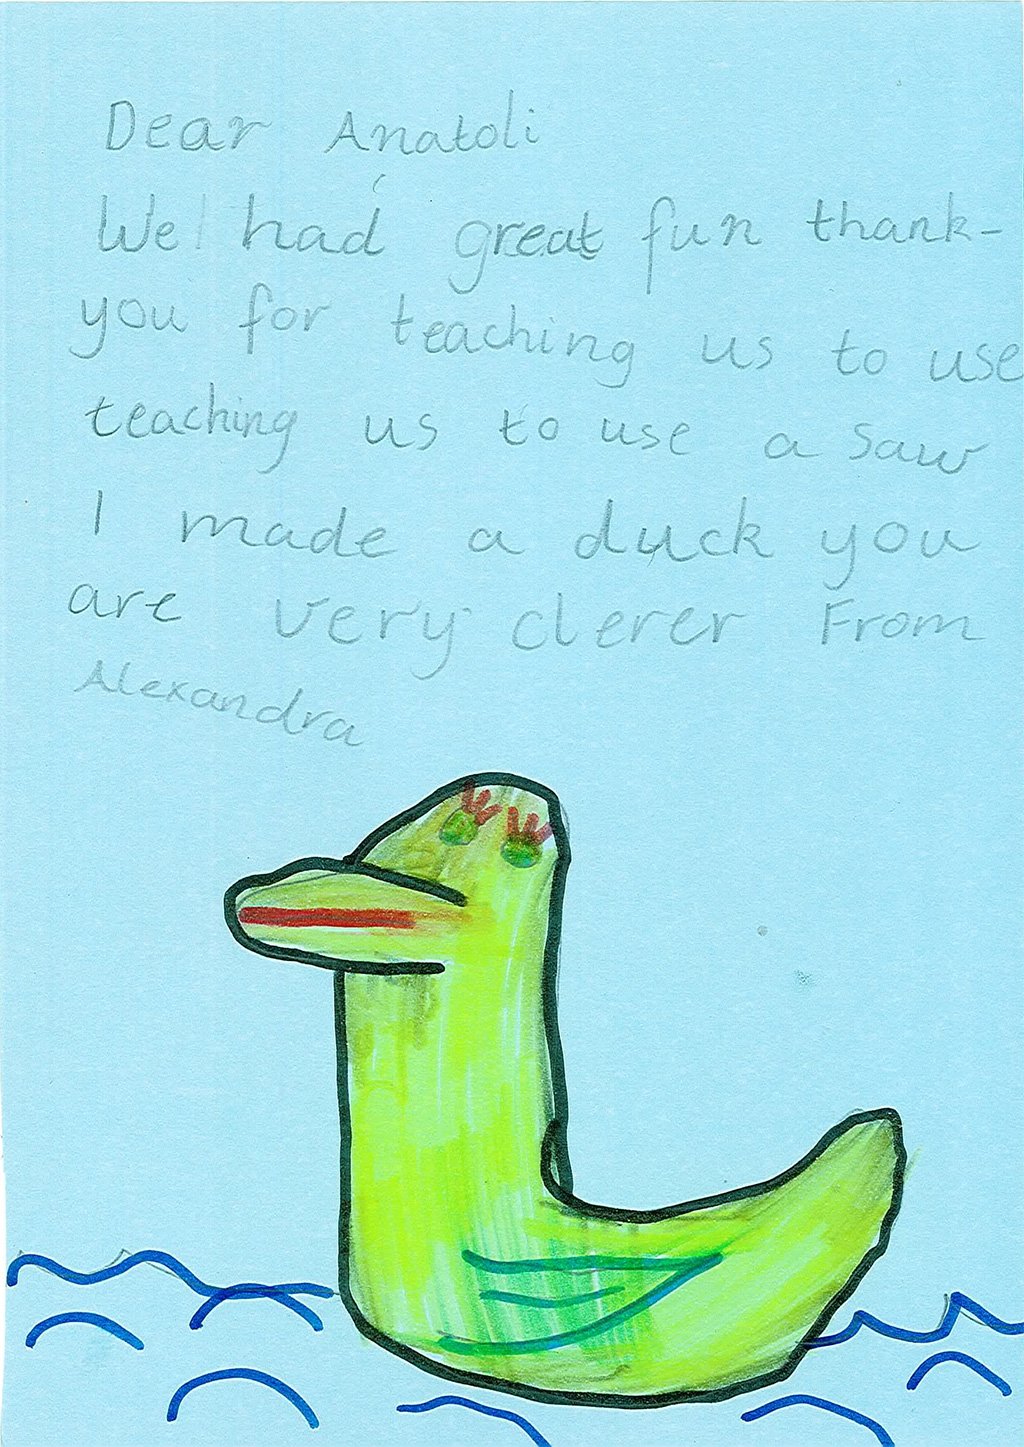 Dear Anatoli
We had great fun thank-
you for teaching us to use
teaching us to use a saw
I made a duck you
are very clerer From
Alexandra